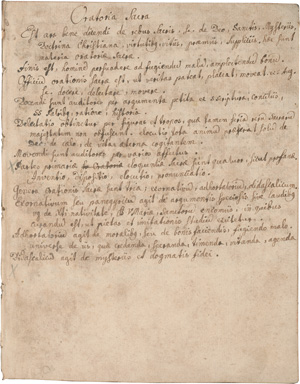 Oratoria Sacra
Est ars bene dicendi de rebus Sacris, i.e. de Deo, Sanctis, Mysteriis,
Doctrina Christiana, virtutibus, vitiis, praemiis, Suppliciis, hae sunt
materia oratoria Sacra.
Finis est, homini persuadere ad fugiendum malum, amplectendum bonum.
Officium orationis Sacrae est, ut veritas pateat, placeat, moveat, vel Aug.
i.e. docere, delectare, movere.
Docendi sunt auditores per argumenta petita ex Scriptura, conciliis,
SS Patribus, ratione, historia.
Delectatio obtinetur per figuras et tropos, qui tamen
majestatem non offendant, elocutio tota animum
Deo, de
Movendi sunt auditores per varios affectus.
Partes primariae sunt quatuor, sicut profana,
Inventio, Dispositio, elocutio, pronunciatio.
Genera Orationis Sacrae sunt tria, exornativum, adhortatorium, didascalicum.
Exornativum seu panegyricum agit de argumento speciosis sive laudibus
v.g. de Xti nativitate, B. Maria, Sanctorum encomiis, in quibus
curandum est, ut pietas et imitationis studium excitetur.
Adhortatorium agit de moralibus, seu de bonis faciendis, fugiendo malo.
universe de iis, quae credenda, speranda, timenda, vitanda, agenda
Didascalicum agit de mysteriis et dogmatis fidei.